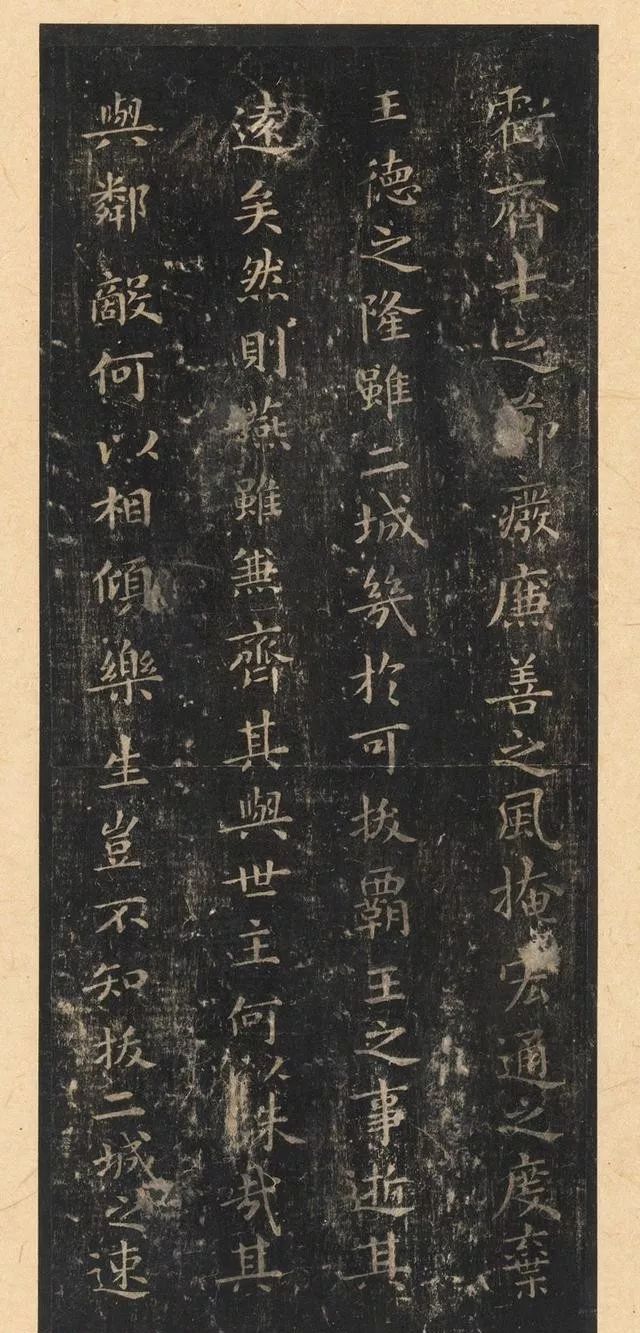 齊士之節廢廉善之風掩宏通之度棄
王德之隆雖二城幾於可拔霸王之事逝其
遠矣然則燕雖兼齊其與世主何以殊哉其
與鄰敵何以相傾樂生豈不知拔二城之速